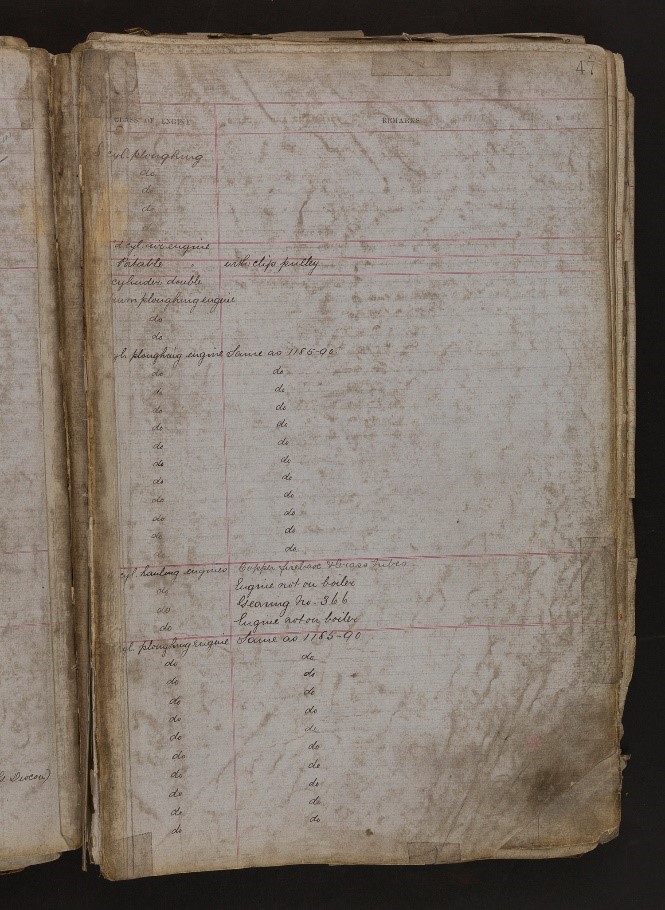 47
CLASS OF ENGINE REMARKS
cyl. ploughing
do
do
do
d cyl. engine
Portable with clip pulley
cylinder double
drum ploughing engine
do
do
yl. ploughing engine Same as 1185-90
do do
do do
do do
do do
do do
do do
do do
do do
do do
do do
do do
cyl. hauling engines Copper firebox & brass tubes
do Engine not on boiler
do Gearing No. 366
do Engine not on boiler
yl. ploughing engine Same as 1185-90
do do
do do
do do
do do
do do
do do
do do
do do
do do
do do